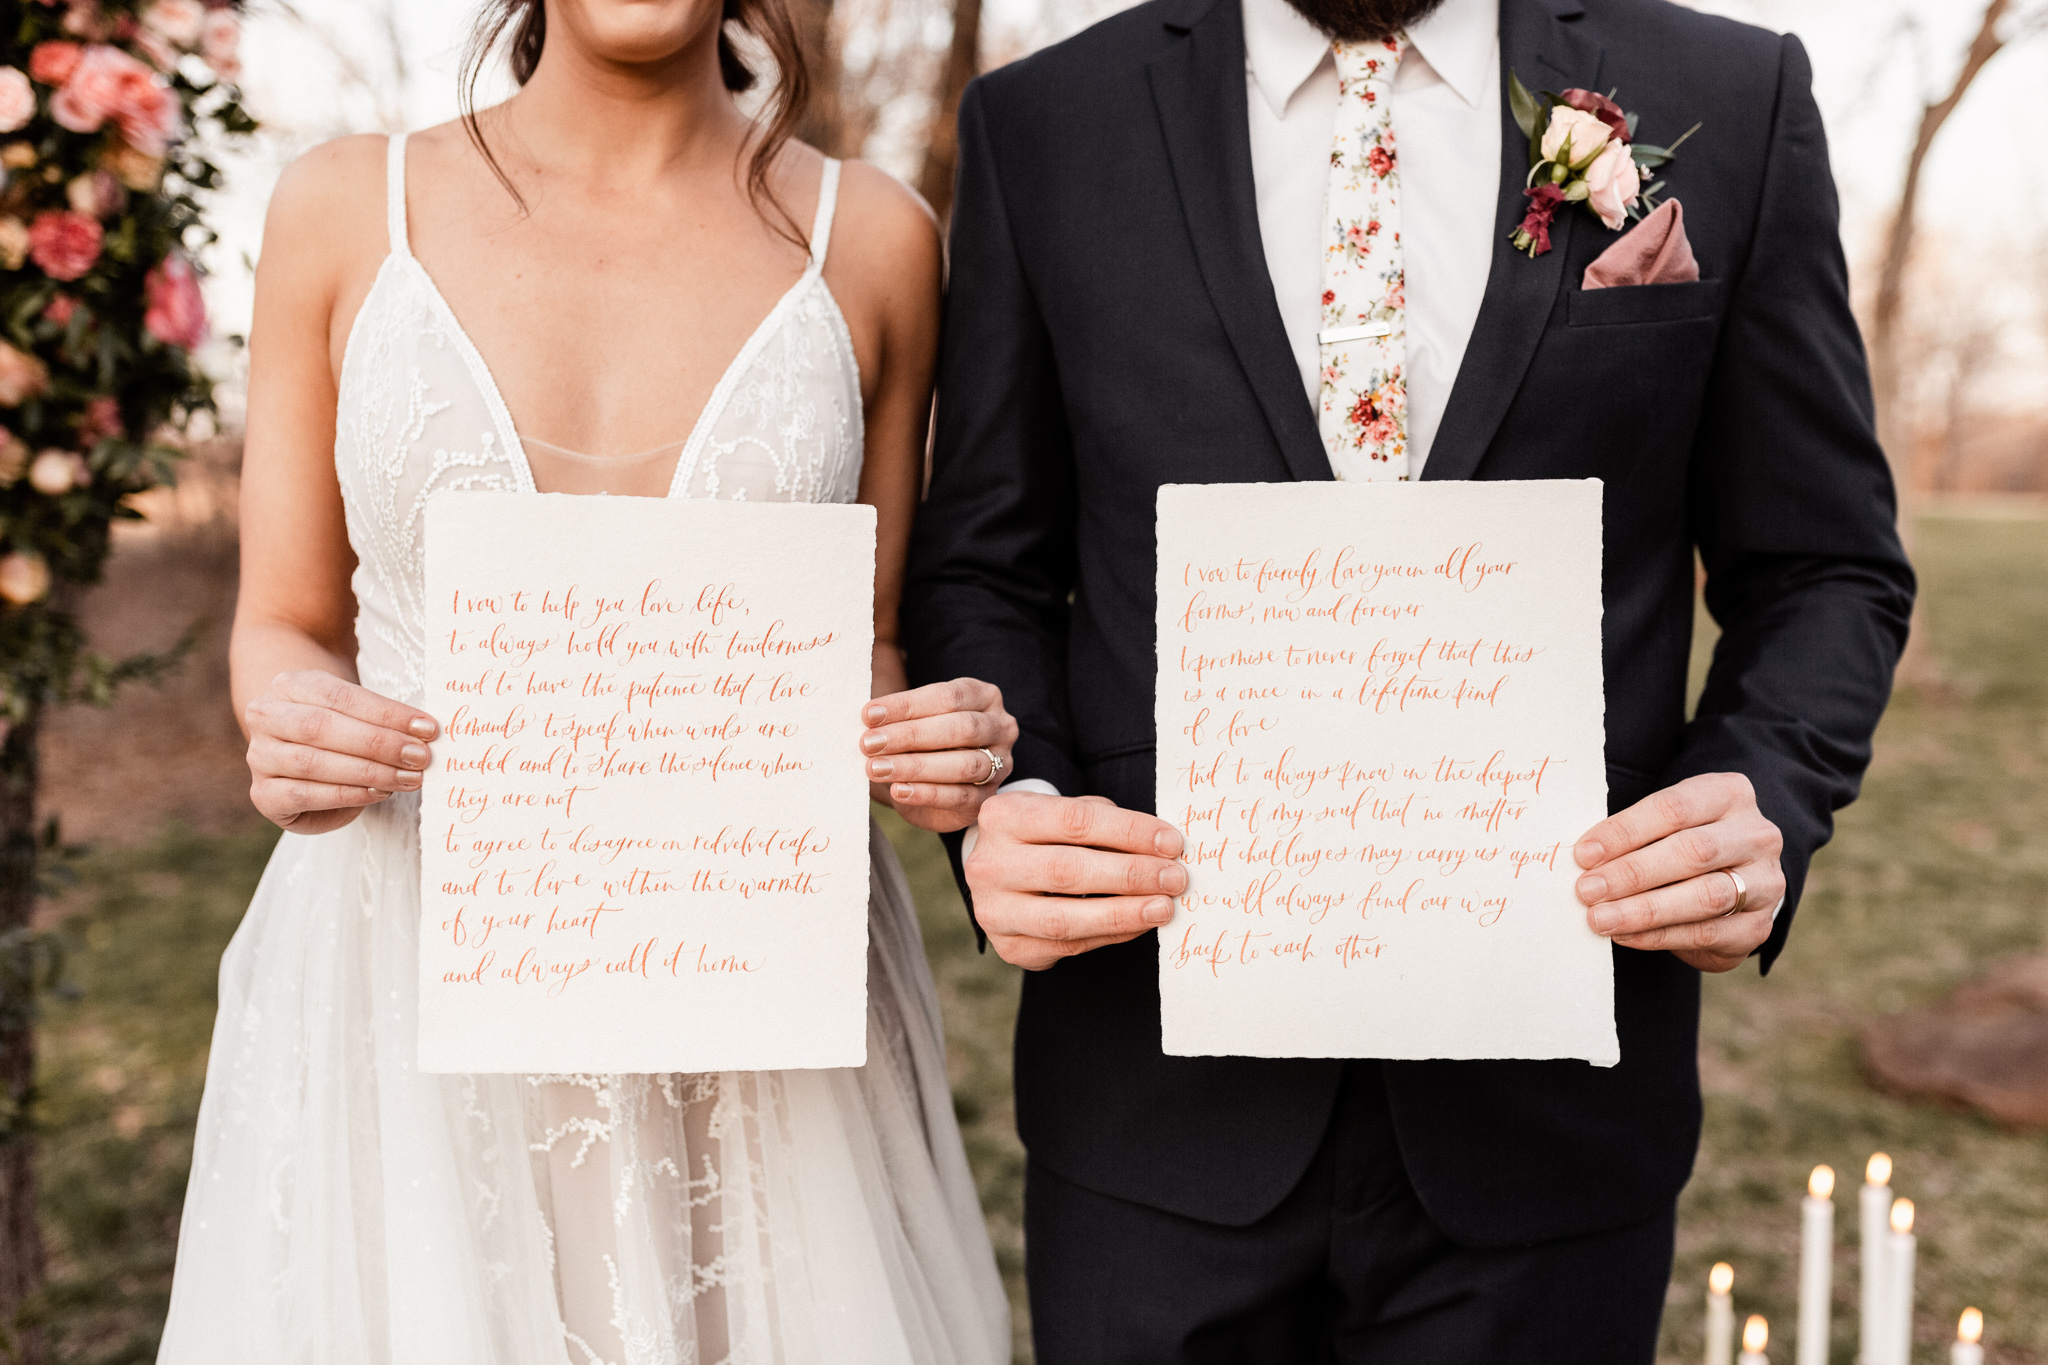 I vow to help you love life,
to always hold you with tenderness
and to have the patience that love
demands to speak when words are
needed and to share the silence when
they are not
to agree to disagree on red velvet cake
and to live within the warmth
of your heart
and always call it home
I vow to fiercely love you in all your
forms, now and forever
I promise to never forget that this
is a once in a lifetime kind
of love
And to always know in the deepest
part of my soul that no matter
what challenges may carry us apart
we will always find our way
back to each other